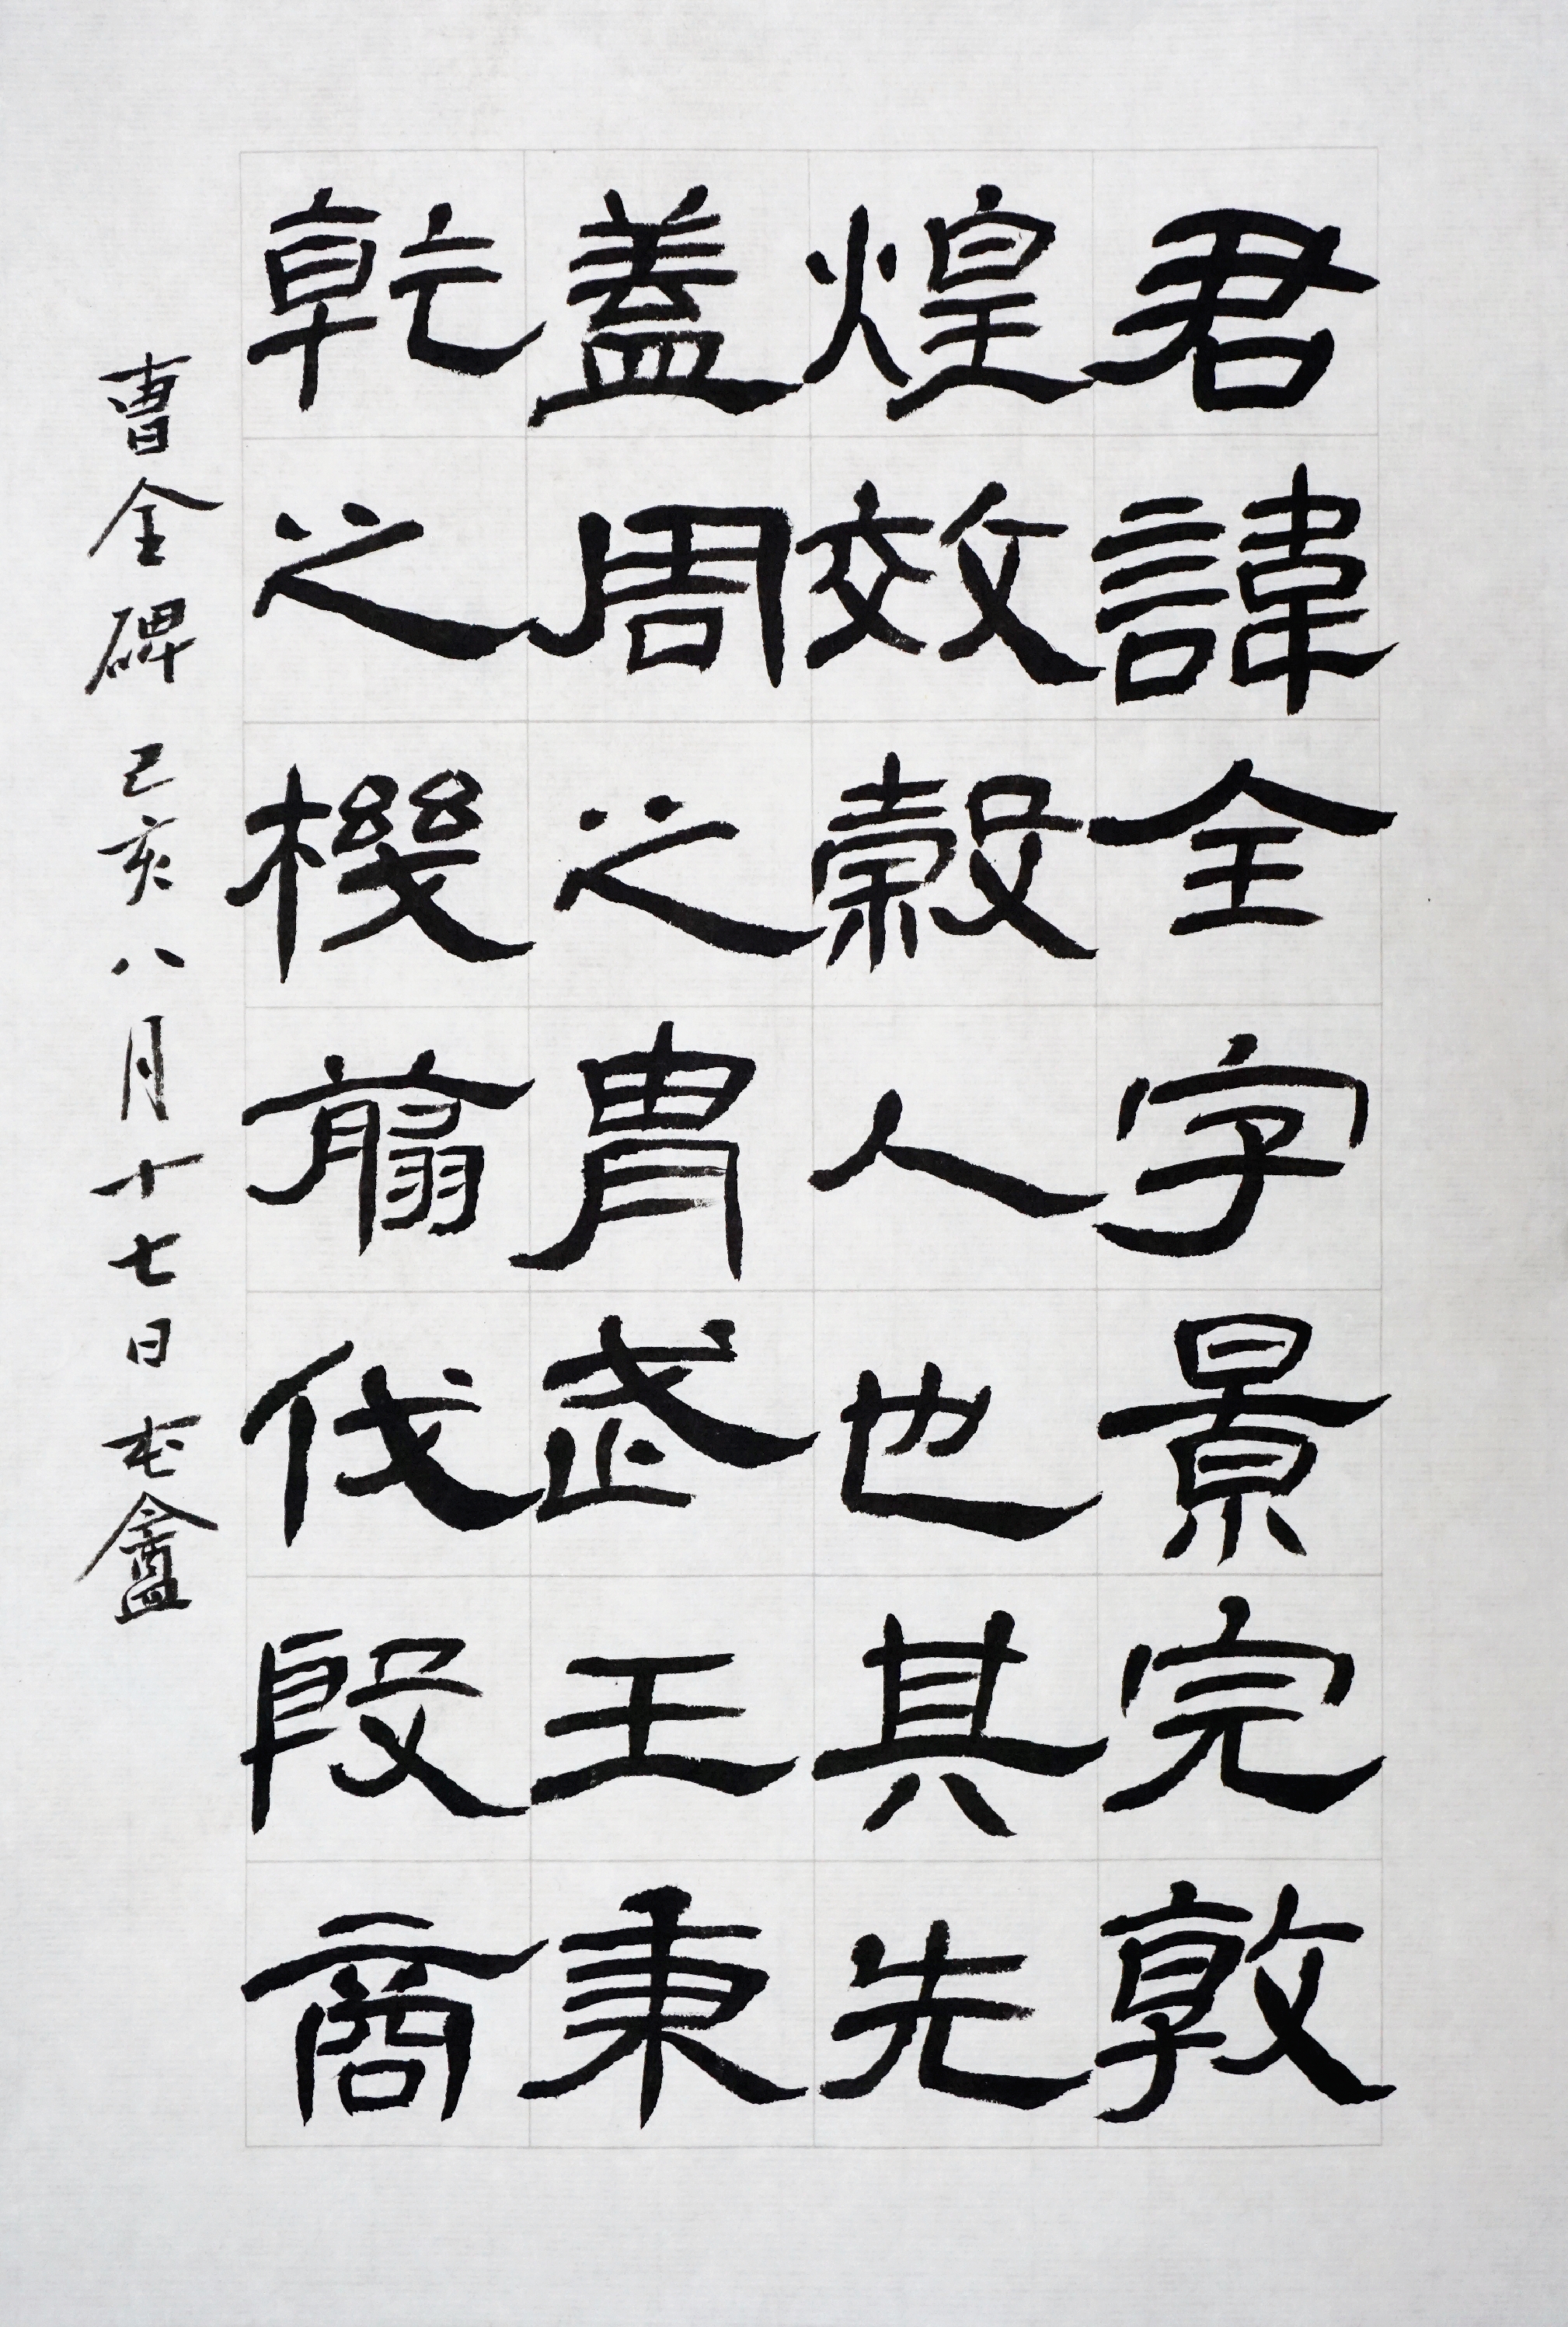 君諱全字景完敦
煌效穀人也其先
蓋周之胄武王秉
乾之機翦伐殷商
曹全碑 己亥八月十七日